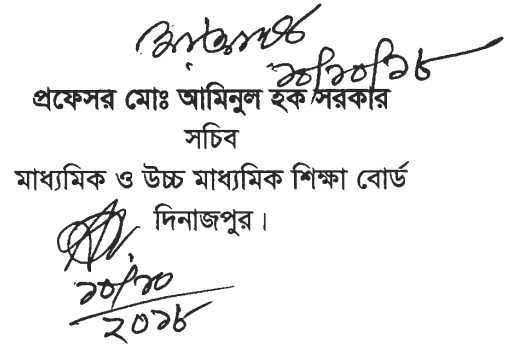 ১০/১০/১৮
প্রফেসর মোঃ আমিনুল হক সরকার
সচিব
মাধ্যমিক ও উচ্চ মাধ্যমিক শিক্ষা বোর্ড
দিনাজপুর।
১০/১০
২০১৮